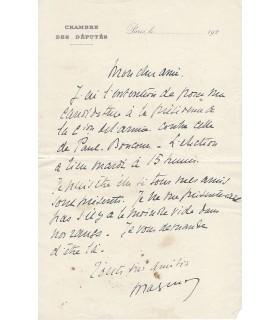 CHAMBRE
DES DÉPUTÉS
Paris, le 192
Mon cher ami.
J'ai l'intention de poser ma
candidature à la présidence de
la Cion de l'armée contre celle
de Paul-Boncour. L'élection
a lieu mardi à 15 heures.
Je puis être élu si tous mes amis
sont présents. Je ne me présenterai
pas s'il y a le moindre vide dans
nos rangs. Je vous demande
d'être là.
Toutes mes amitiés
Maginot